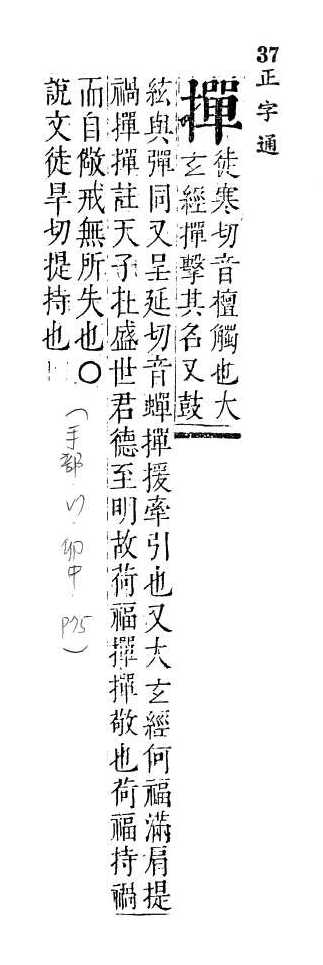 37正字通
撣徒寒切音檀觸也大
玄經撣擊其名又鼓
絃與彈同又呈延切音蟬撣援牽引也又大玄經何福滿肩提
禍撣撣註天子扗盛世君德至明故荷福撣撣敬也荷福持禍
而自儆戒無所失也〇
說文徒旱切提持也
(手部 卯中 P75)